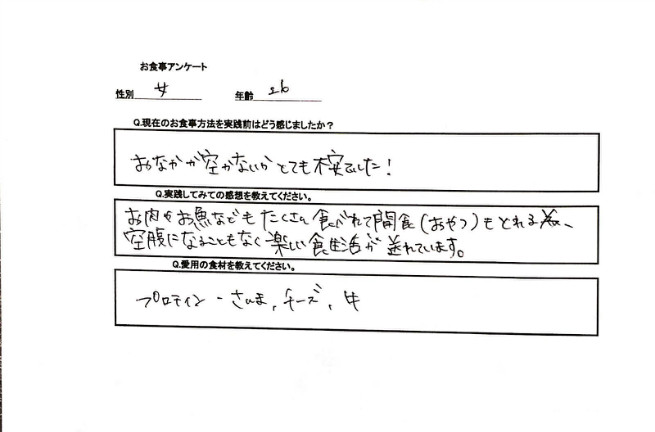 お食事アンケート
性別 女 年齢 26
Q.現在のお食事方法を実践前はどう感じましたか？
おなかが空かないかとても不安でした！
Q.実践してみての感想を教えてください。
お肉やお魚などもたくさん食べれて間食(おやつ)もとれる
空腹になることもなく楽しい食生活が送れています。
Q.愛用の食材を教えてください。
プロテイン・さんま,チーズ,牛